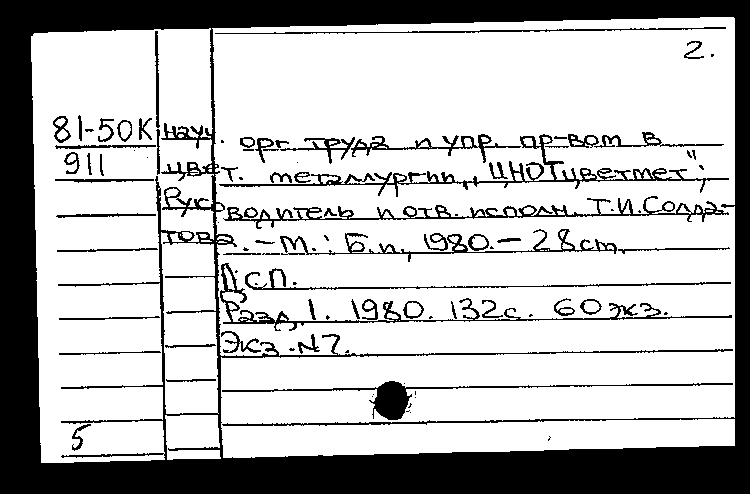 2.
81-50К Науч. орг. труда и упр. пр-вом в
911 цвет. металлургии „ЦНОТцветмет";
Руководитель и отв. исполн. Т.И.Солда-
това. — М.: Б.и., 1980. — 28 cm.
ДСП.
Разд. 1. 1980. 132с. 60 экз.
Экз. N7.
5